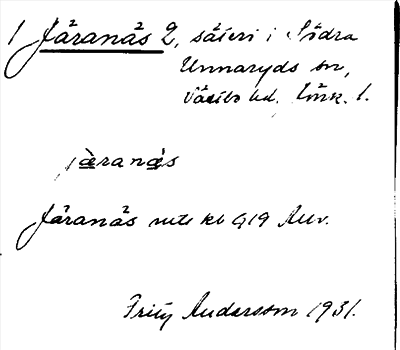 1 Järanäs 2, säteri i Södra
Unnaryds sn,
Västbo hd, Jönk. l.
jæ̀ranæ̀s
Järanäs mtl kb G19 Auv.
Frity Andersson 1931.